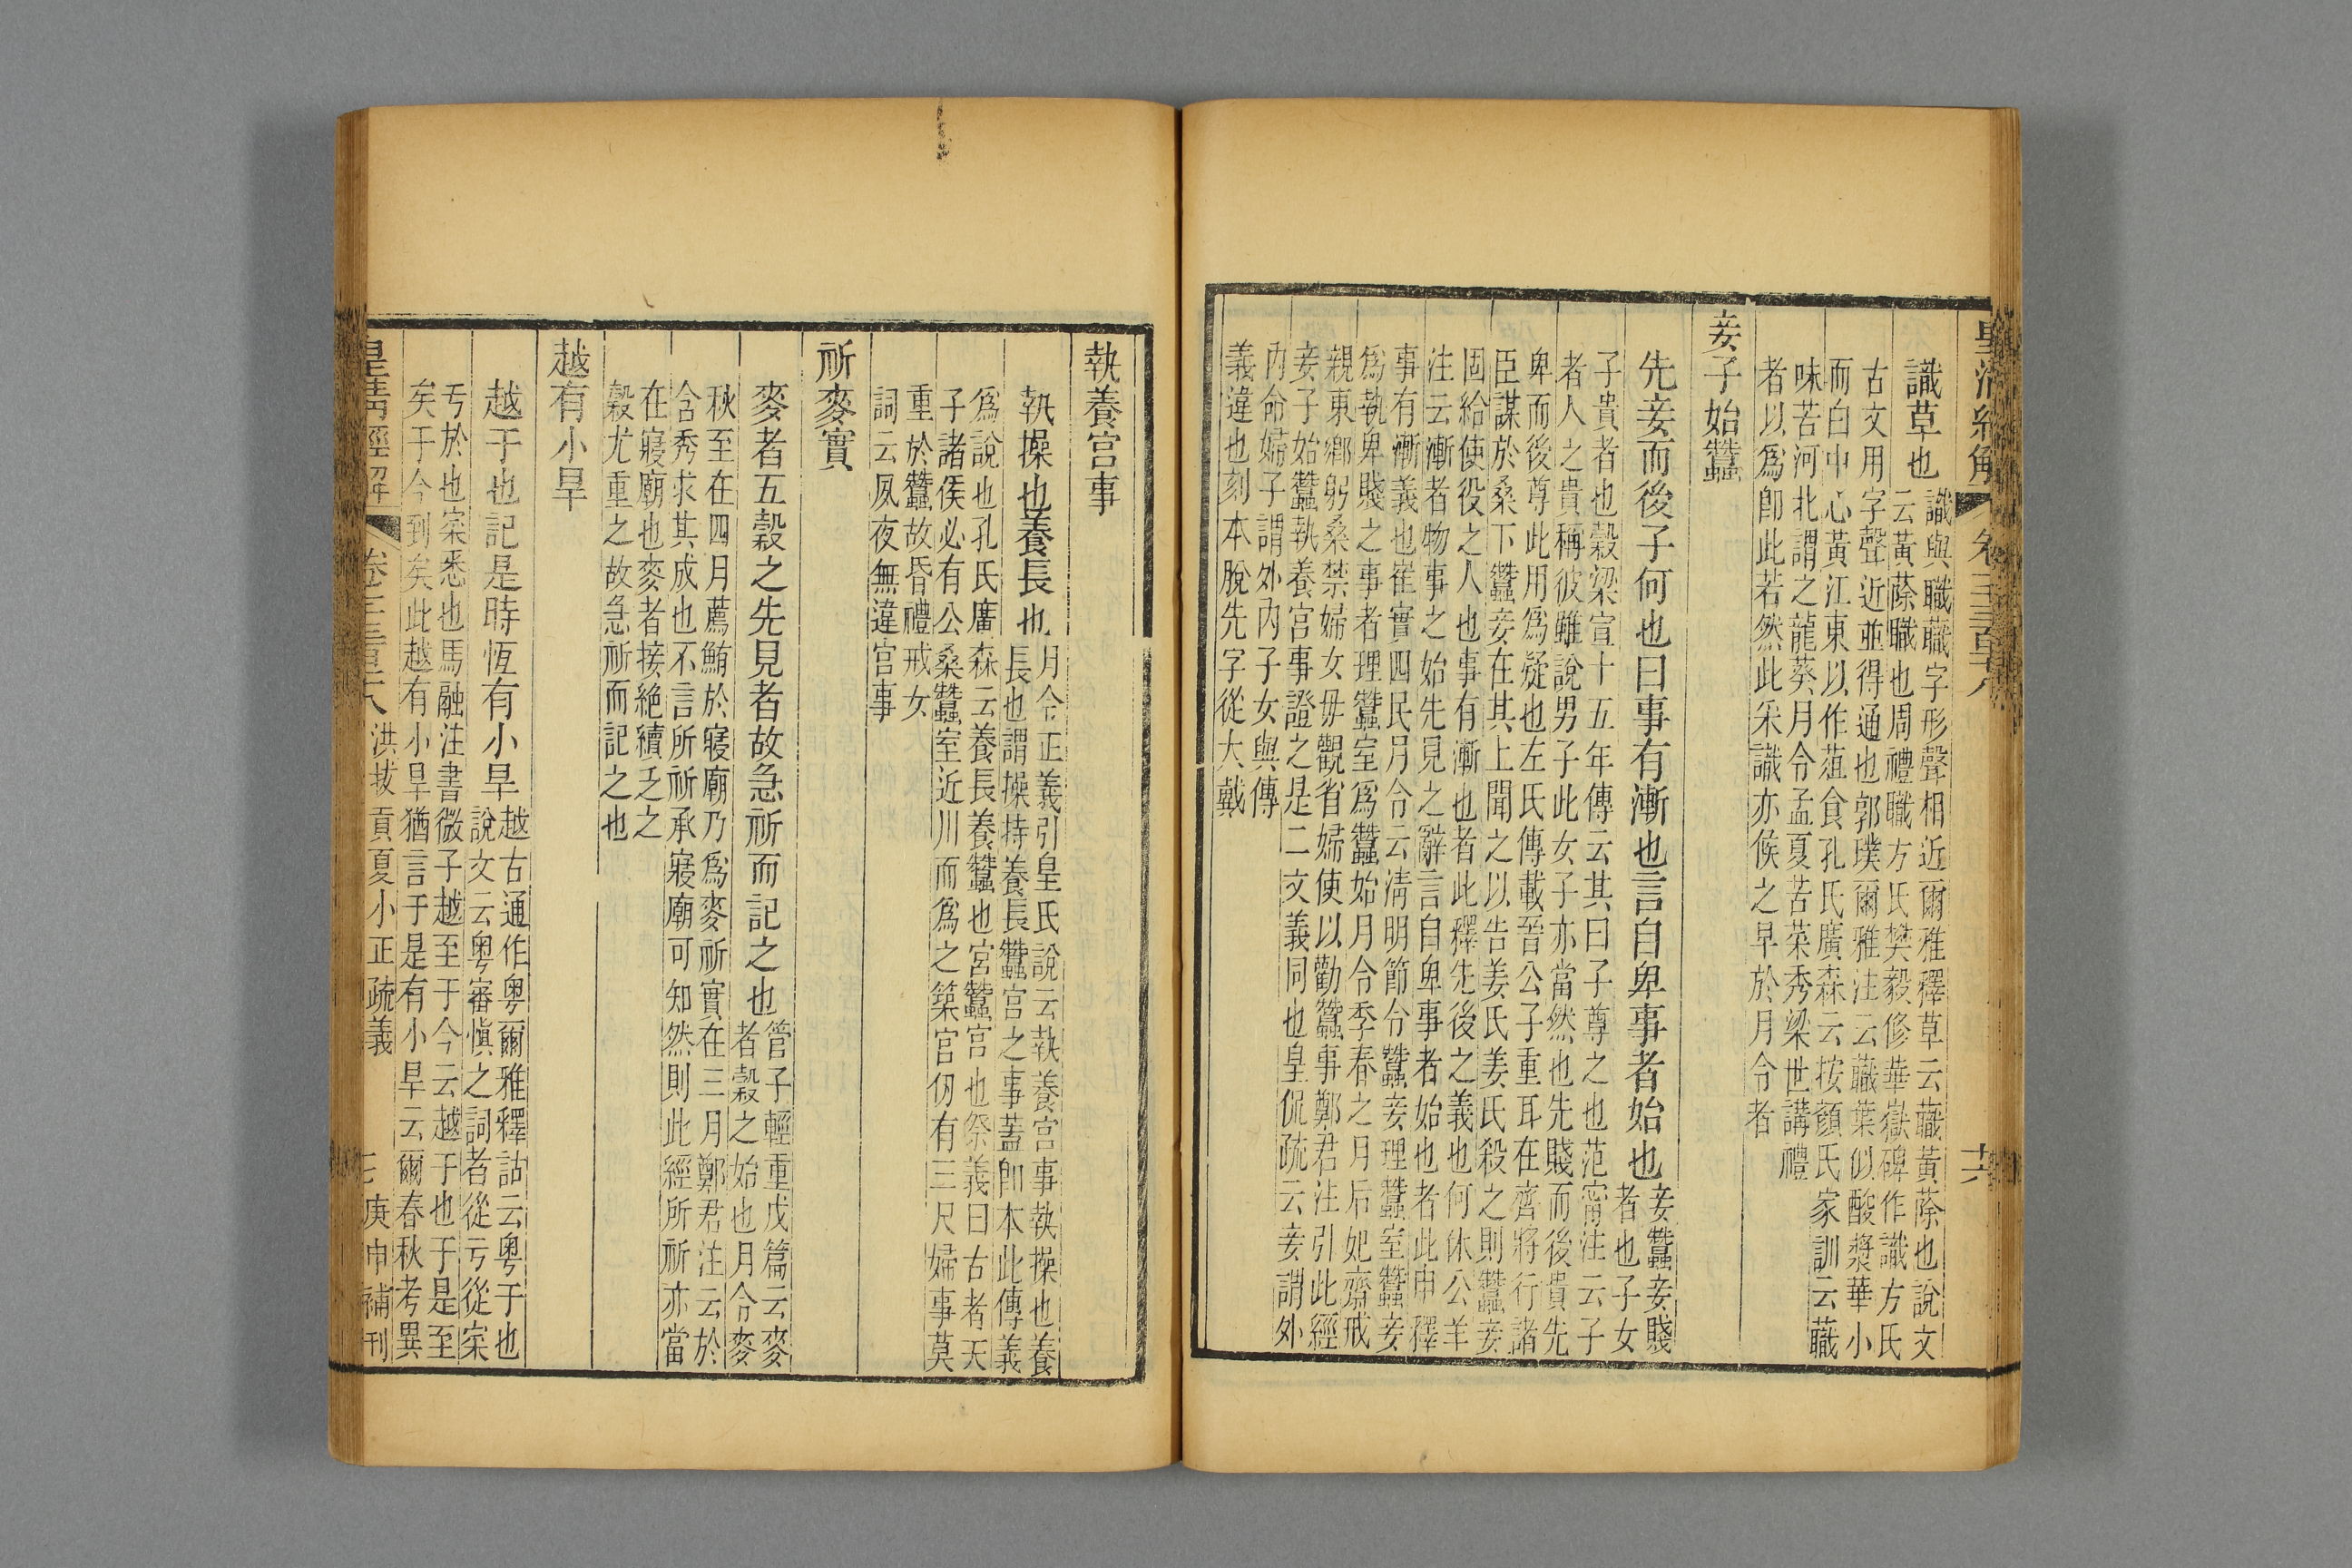 皇清經解 卷三百二十八 十六
識草也
識與職蘵字形聲相近爾雅釋草云蘵黃蒢也說文
云黃蒢職也周禮職方氏樊毅修華嶽碑作識方氏
古文用字聲近並得通也郭璞爾雅注云蘵葉似酸漿華小
而白中心黃江東以作菹食孔氏廣森云按顏氏家訓云蘵
味苦河北謂之龍葵月令孟夏苦菜秀梁世講禮
者以爲卽此若然此采識亦候之早於月令者
妾子始蠶
先妾而後子何也曰事有漸也言自卑事者始也
妾蠶妾賤
者也子女
子貴者也穀梁宣十五年傳云其曰子尊之也范甯注云子
者人之貴稱彼雖說男子此女子亦當然也先賤而後貴先
卑而後尊此用爲疑也左氏傳載晉公子重耳在齊將行諸
臣謀於桑下蠶妾在其上聞之以告姜氏姜氏殺之則蠶妾
固給使役之人也事有漸也者此釋先後之義也何休公羊
注云漸者物事之始先見之辭言自卑事者始也者此申釋
事有漸義也崔寔四民月令云淸明節令蠶妾理蠶室蠶妾
爲執卑賤之事者理蠶室爲蠶始月令季春之月后妃齋戒
親東鄉躬桑禁婦女毋觀省婦使以勸蠶事鄭君注引此經
妾子始蠶執養宮事證之是二文義同也皇侃疏云妾謂外
內命婦子謂外內子女與傳
義違也刻本脫先字從大戴
執養宮事
執操也養長也
月令正義引皇氏說云執養宮事執操也養
長也謂操持養長蠶宮之事蓋卽本此傳義
爲說也孔氏廣森云養長養蠶也宮蠶宮也祭義曰古者天
子諸侯必有公桑蠶室近川而爲之築宮仞有三尺婦事莫
重於蠶故昏禮戒女
詞云夙夜無違宮事
祈麥實
麥者五穀之先見者故急祈而記之也
管子輕重戊篇云麥
者穀之始也月令麥
秋至在四月薦鮪於寢廟乃爲麥祈實在三月鄭君注云於
含秀求其成也不言所祈承寢廟可知然則此經所祈亦當
在寢廟也麥者接絕續乏之
穀尤重之故急祈而記之也
越有小旱
越于也記是時恆有小旱
越古通作粵爾雅釋詁云粵于也
說文云粵審愼之詞者從亏從宷
亏於也宷悉也馬融注書微子越至于今云越于也于是至
矣于今到矣此越有小旱猶言于是有小旱云爾春秋考異
皇淸經解 卷三百二十八 洪拔貢夏小正疏義 庚申補刊